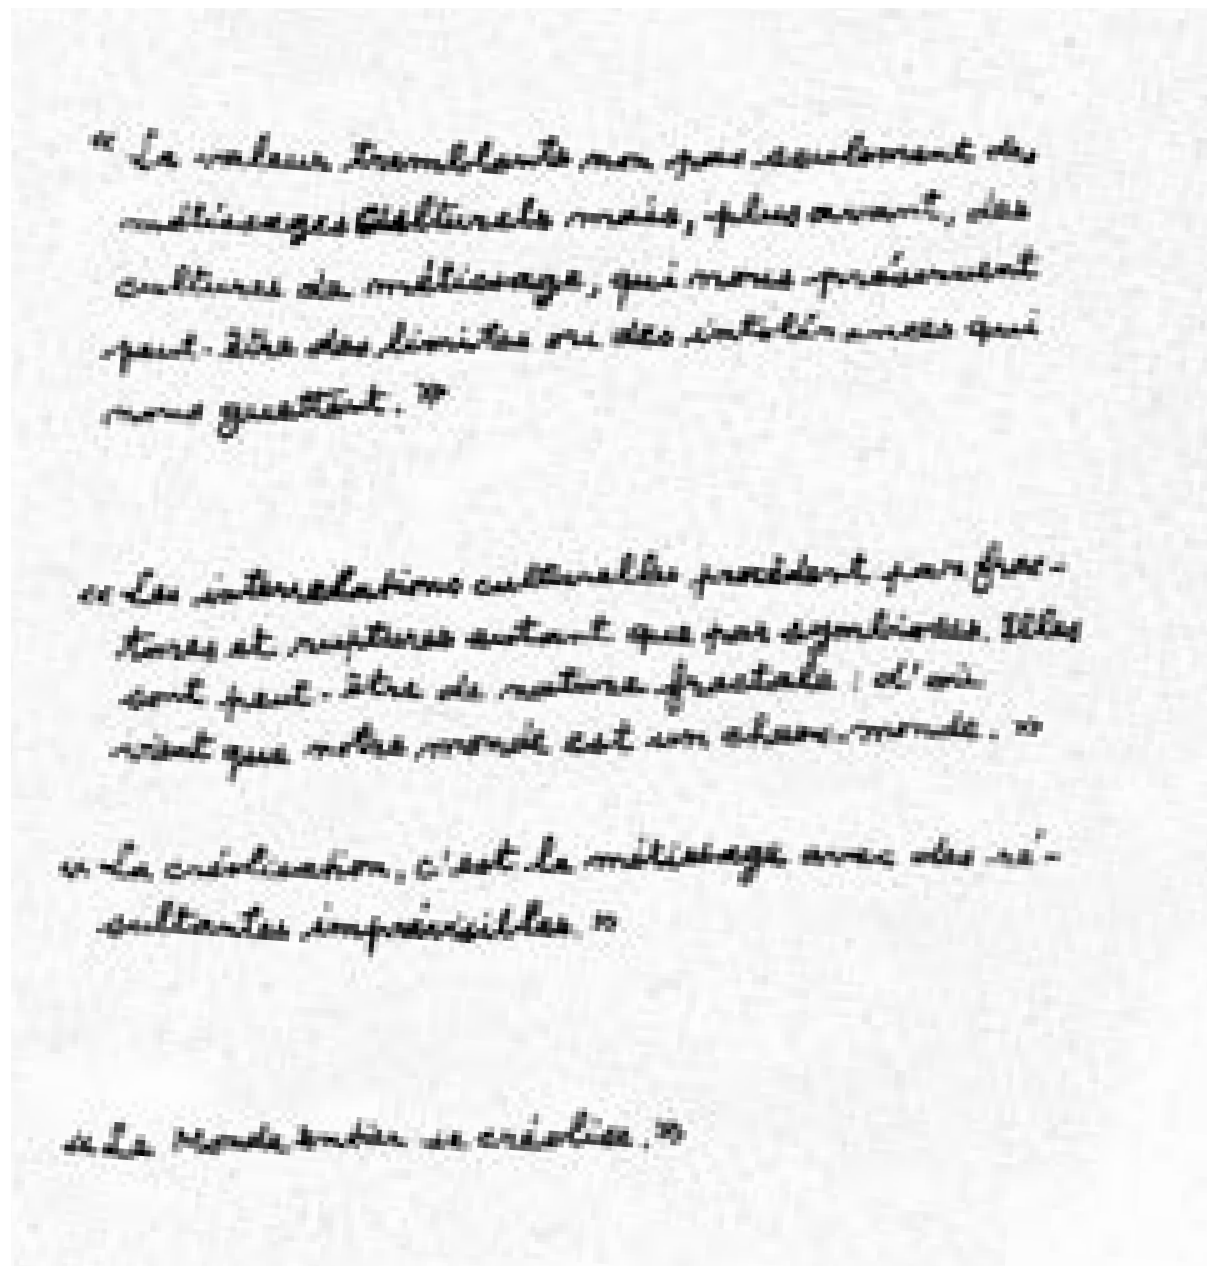 « La valeur tremblante non pas seulement des
métissages culturels mais, plus avant, des
cultures de métissage, qui nous préservent
peut-être des limites ou des intolérances qui
nous guettent. »
« Les interrelations culturelles procèdent par frac-
tures et ruptures autant que par symbioses. Elles
sont peut-être de nature fractale ; d'où
vient que notre monde est un chaos-monde. »
« La créolisation, c'est le métissage avec des ré-
sultantes imprévisibles. »
« Le Monde entier se créolise. »